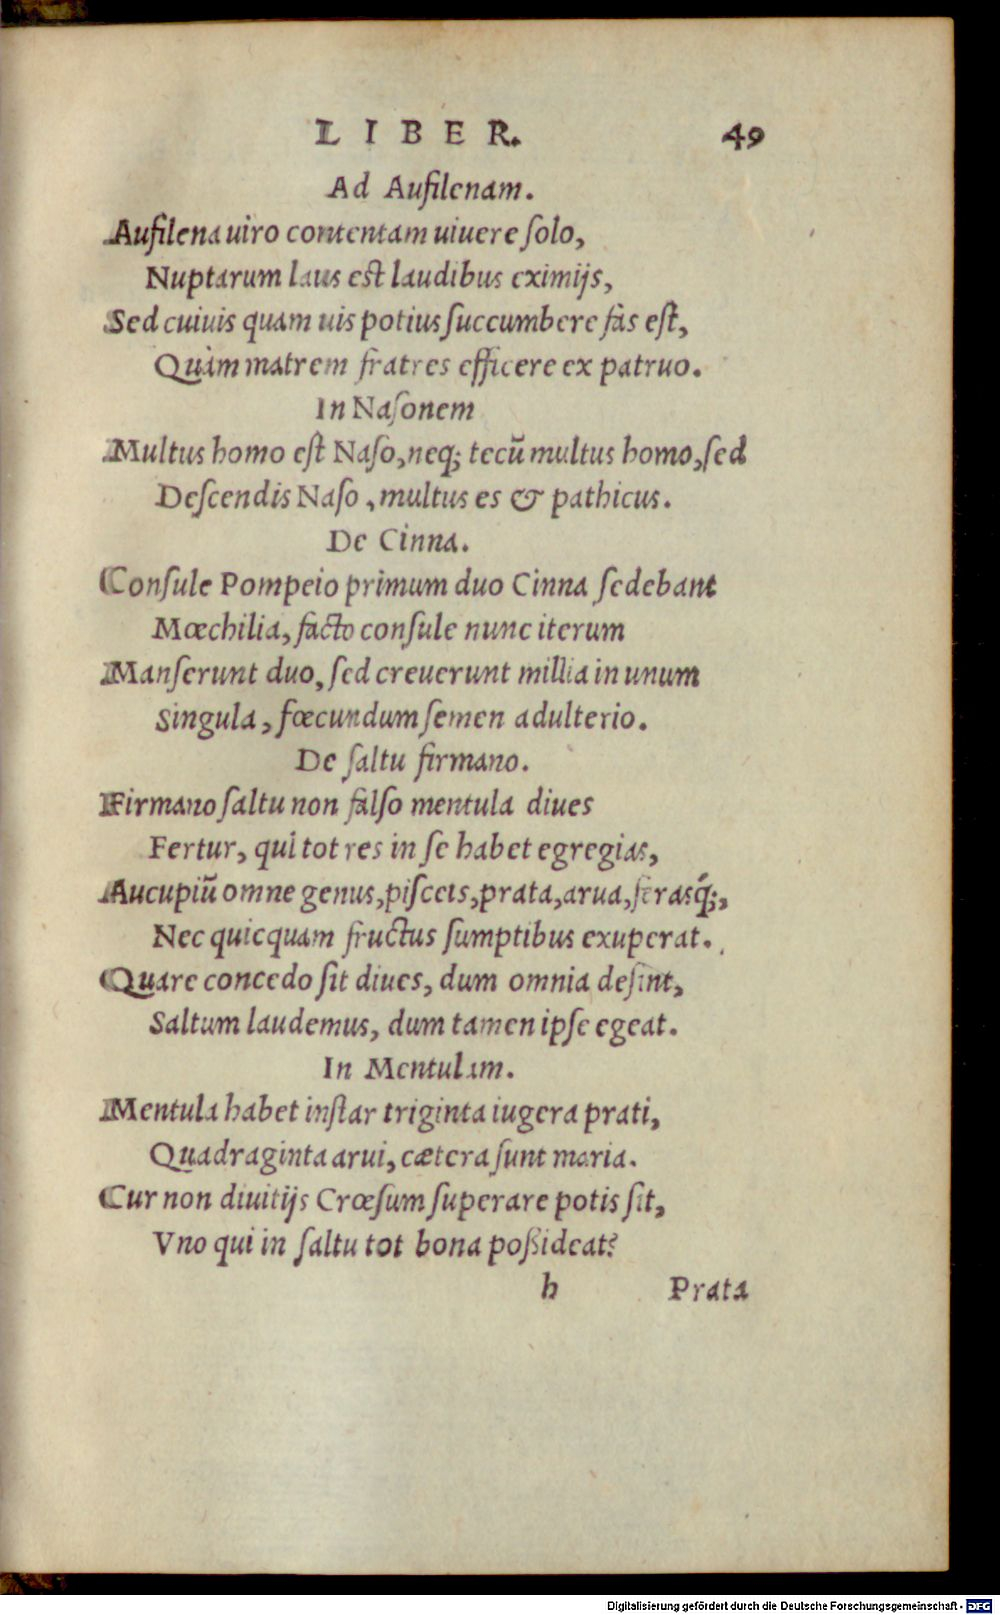 LIBER. 49
Ad Aufilenam.
Aufilena uiro contentam uiuere ſolo,
Nuptarum laus eſt laudibus eximijs,
Sed cuiuis quam uis potius ſuccumbere fas eſt,
Quàm matrem fratres efficere ex patruo.
In Naſonem
Multus homo eſt Naſo, neq; tecū multus homo, ſed
Deſcendis Naſo, multus es & pathicus.
De Cinna.
Conſule Pompeio primum duo Cinna ſedebant
Mœchilia, facto conſule nunc iterum
Manſerunt duo, ſed creuerunt millia in unum
Singula, fœcundum ſemen adulterio.
De ſaltu firmano.
Firmano ſaltu non falſo mentula diues
Fertur, quì tot res in ſe habet egregias,
Aucupiū omne genus, piſceis, prata, arua, ferasq́;,
Nec quicquam fructus ſumptibus exuperat.
Quare concedo ſit diues, dum omnia deſint,
Saltum laudemus, dum tamen ipſe egeat.
In Mentulam.
Mentula habet inſtar triginta iugera prati,
Quadraginta arui, cætera ſunt maria.
Cur non diuitijs Crœſum ſuperare potis ſit,
Vno qui in ſaltu tot bona poßideat?
h Prata
Digitalisierung gefördert durch die Deutsche Forschungsgemeinschaft - DFG